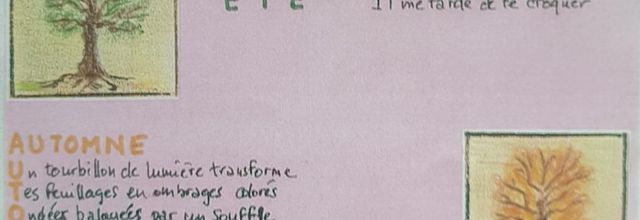 ÉTÉ
Il me tarde de te croquer
AUTOMNE
Un tourbillon de lumière transforme
Tes feuillages en ombrages colorés
Ondées balayées par un souffle